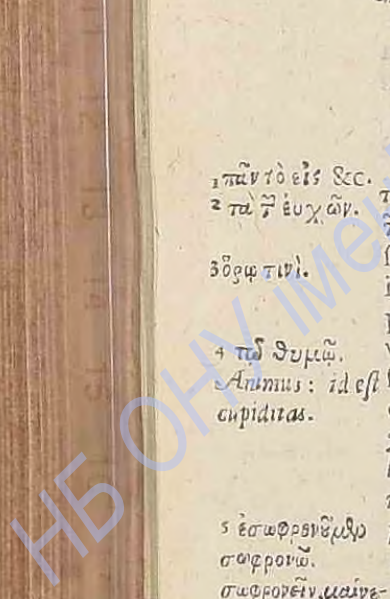 1 πᾶν τὸ εἰς &c.
2 τὰ τ͂ ἐυχῶν.
3 ὅρῳ τινὶ.
4 τῷ θυμῷ.
Animus: id est
cupiditas.
5 ἐσωφρονοῦμεν
σωφρονῶ.
σωφρονεῖν, μαίνε-
НБ ОНУ імені